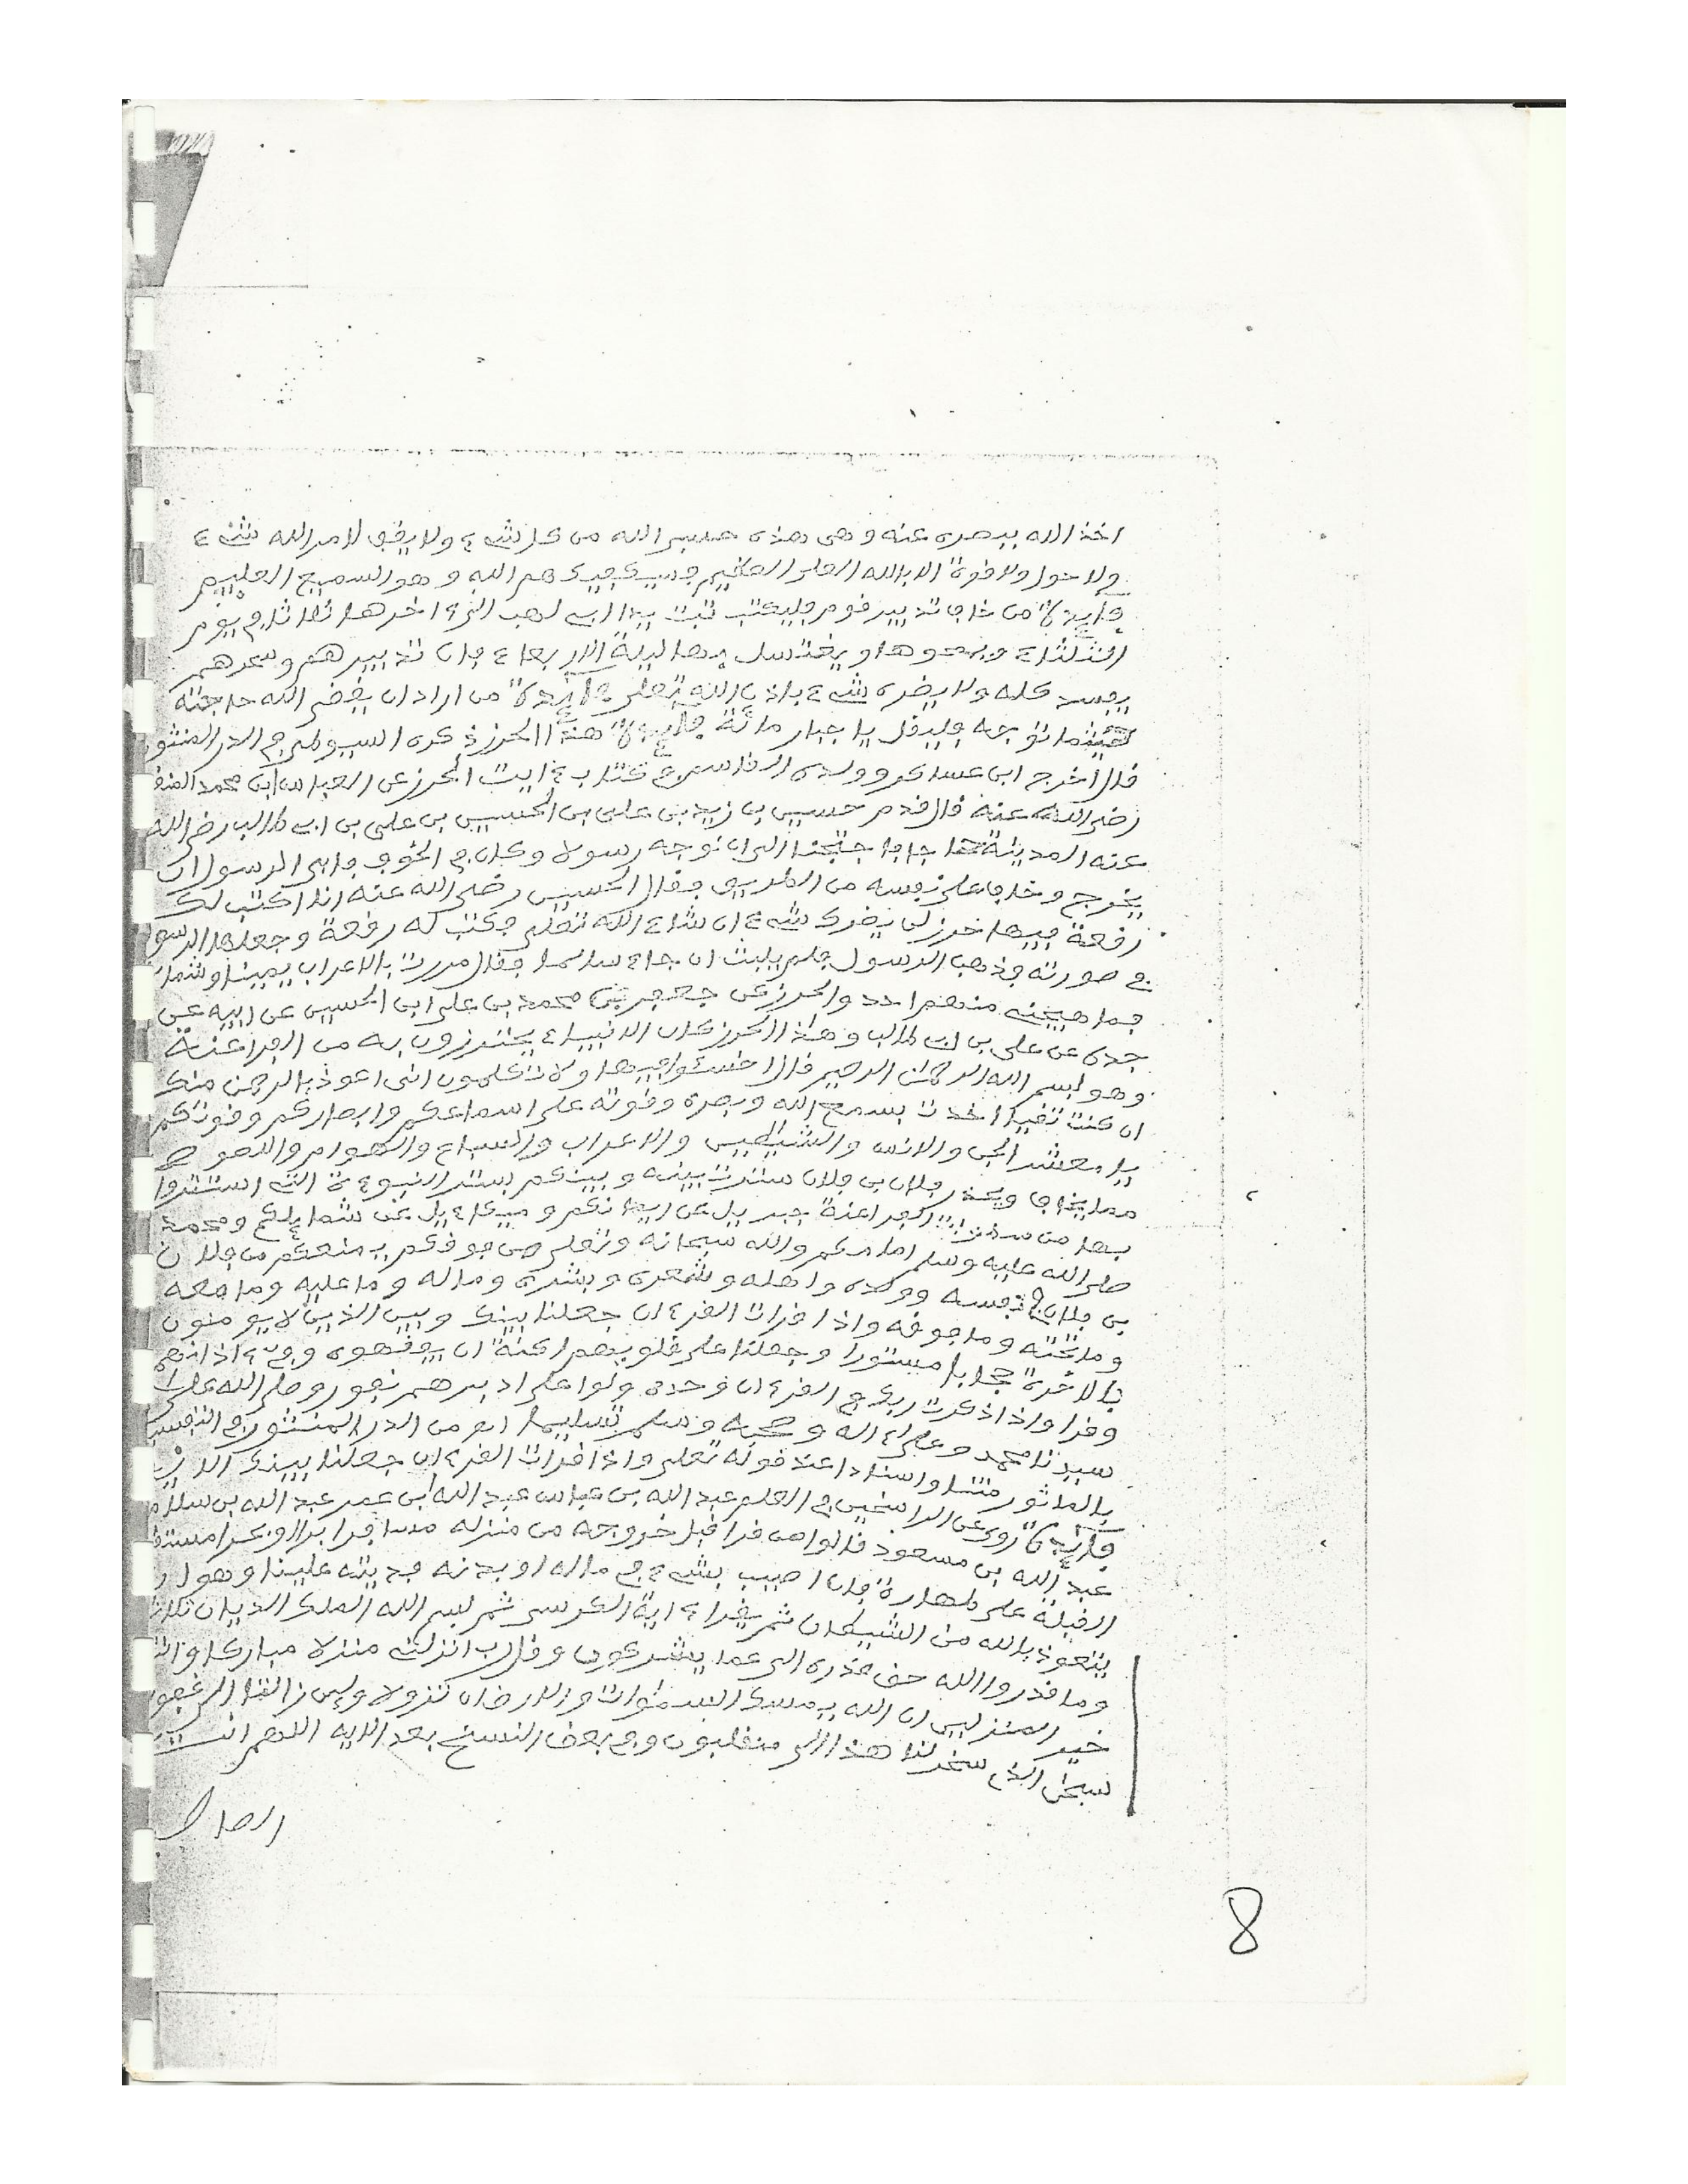 اخذ الله ببصره عنه وهى هذه حسبى الله من كل شىء ولا يقوى لامر الله شىء
ولا حول ولا قوة الا بالله العلى العظيم فسيكفيكهم الله وهو السميع العليم
فايدة من خاف تدبير قوم فليكتب تبت يدا ابى لهب الى ءاخرها ثلاثا فى يوم
الثلثاء ويمحوها ويغتسل بها ليلة الاربعاء فان تدبيرهم وسحرهم
يفسد كله ولا يضره شىء باذن الله تعلى فايدة من اراد ان يقضى الله حاجته
حيثما توجه فليقل يا جبار مائة فايدة هذا الحرز ذكره السيوطى فى الدر المنثور
قال اخرج ابن عساكر وولده القاسم فى كتاب ءايت الحرز عن العباس ابن محمد المنقر
رضى الله عنه قال قدم حسين بن زيد بن على بن الحسين بن على بن ابى طالب رضى الله
عنه المدينة حاجا فاحتجنا الى ان نوجه رسولا وكان فى الخوف فابى الرسول ان
يخرج وخاف على نفسه من الطريق فقال الحسين رضى الله عنه انا اكتب لك
رقعة فيها حرز لن يضرك شىء ان شاء الله تعلى فكتب له رقعة وجعلها الرسول
فى صورته فذهب الرسول فلم يلبث ان جاء سالما فقال مررت بالاعراب يمينا وشمالا
فما هيجنى منهم احد والحرز عن جعفر بن محمد بن على ابن الحسين عن ابيه عن
جده عن على بن ابى طالب وهذا الحرز كان الانبياء يحترزون به من الفراعنة
وهو بسم الله الرحمن الرحيم قال اخسئوا فيها ولا تكلمون انى اعوذ بالرحمن منك
ان كنت تقيا اخذت بسمع الله وبصره وقوته على اسماعكم وابصاركم وقوتكم
يا معشر الجن والانس والشيطين والاعراب والسباع والهوام واللصوص
مما يخاف ويحذر فلان بن فلان سترت بينه وبينكم بستر النبوءة التى استتروا
بها من سطوات الفراعنة جبريل عن ايمانكم وميكاءيل عن شمايلكم ومحمد
صلى الله عليه وسلم امامكم والله سبحانه وتعلى من فوقكم يمنعكم من فلان
بن فلان فى نفسه وولده واهله وشعره وبشره وماله وما عليه وما معه
وما تحته وما فوقه واذا قرات القرءان جعلنا بينك وبين الذين لا يومنون
بالاخرة حجابا مستورا وجعلنا على قلوبهم اكنة ان يفقهوه وفى ءاذانهم
وقرا واذا ذكرت ربك فى القرءان وحده ولوا على ادبرهم نفورا وصلى الله على
سيدنا محمد وعلى ءاله وصحبه وسلم تسليما اه من الدر المنثور فى التفسير
بالماثور متنا واسنادا عند قوله تعلى واذا قرات القرءان جعلنا بينك الاية
فايدة روى عن الراسخين فى العلم عبد الله بن عباس عبد الله ابن عمر عبد الله بن سلام
عبد الله بن مسعود قالوا من قرا قبل خروجه من منزله مسافرا برا او بحرا مستقبل
القبلة على طهارة فان اصيب بشىء فى ماله او بدنه فديته علينا وهو ان
يتعوذ بالله من الشيطان ثم يقراء ءاية الكرسى ثم بسم الله الملك الديان ثلاثا
وما قدروا الله حق قدره الى عما يشركون وقل رب انزلنى منزلا مباركا وانت
خير المنزلين ان الله يمسك السموات والارض ان تزولا ولين زالتا الى غفورا
سبحن الذى سخر لنا هذا الى منقلبون وفى بعض النسخ بعد الاية اللهم انت
الصاحب
8